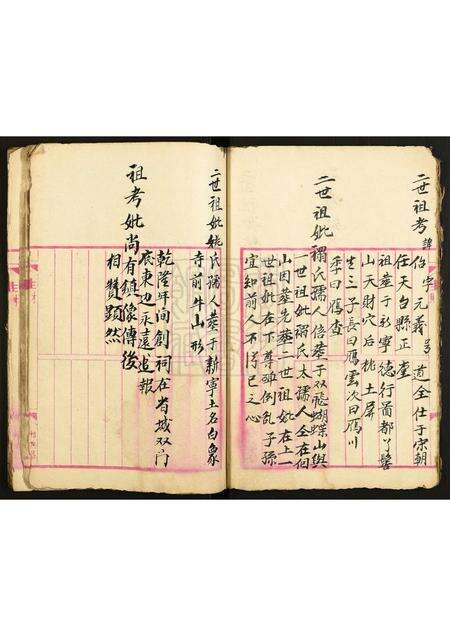 二世祖考諱伯字元義号道全仕于宋朝
任天台縣正堂
祖葬于永寧德行啚都丫髻
山天財穴后枕土屏
生三子長曰鴈雲次曰鴈川
季曰鴈查
二世祖妣禤氏孺人倍葬于双飛蝴蝶山與
一世祖妣禤氏太孺人全在個
山因葬先葬二世祖妣在上一
世祖妣在下尊卑倒乱子孫
宜知前人不得已之心
二世祖妣姚氏孺人葬于新寧土名白象
寺前牛山形
乾隆年间創祠在省城双门
底東边永遠追報
祖考妣尚有鎮像傳後
相贊顕然